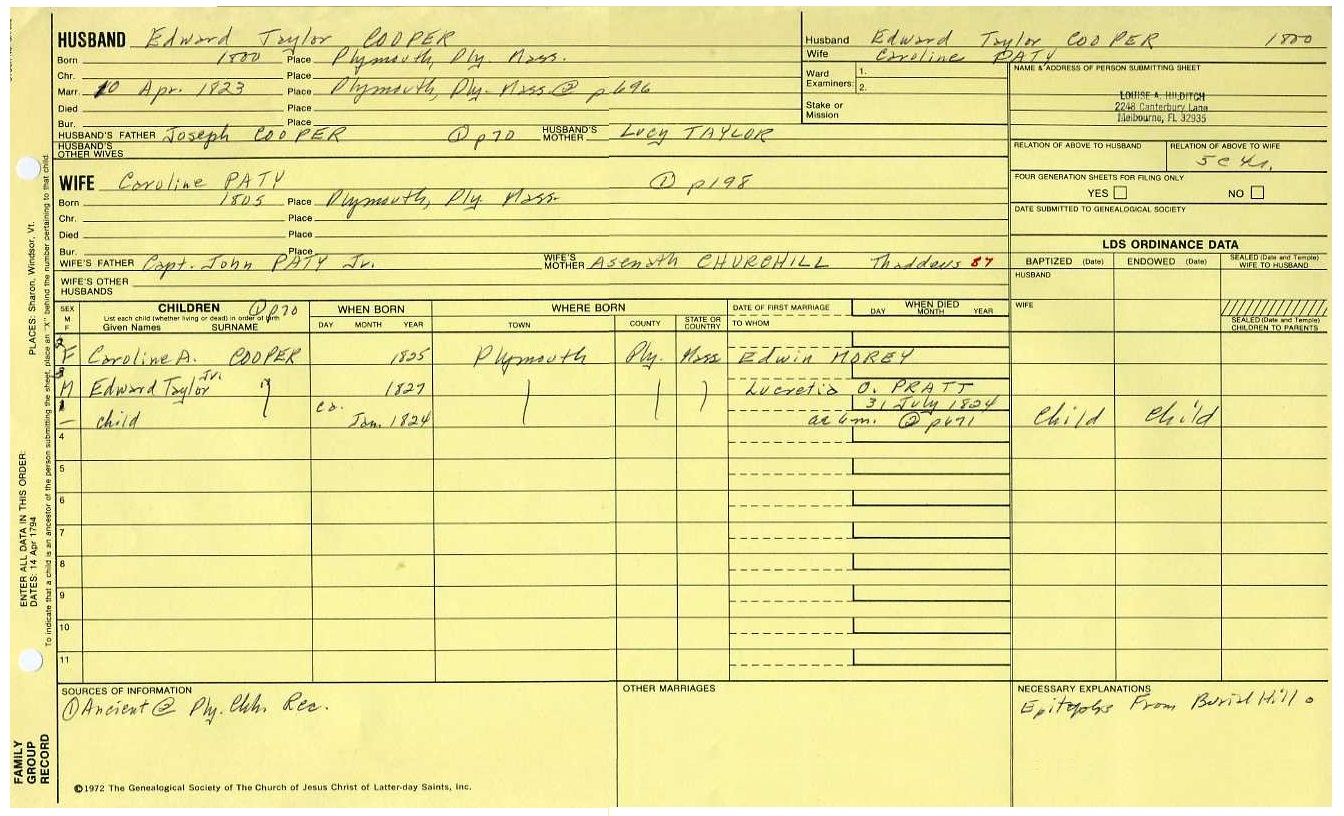 HUSBAND Edward Taylor COOPER
Born 1800 Place Plymouth, Ply. Mass.
Chr. Place
Marr. 10 Apr. 1823 Place Plymouth, Ply. Mass ② p696
Died Place
Bur. Place
HUSBAND'S FATHER Joseph COOPER ① p70 HUSBAND'S MOTHER Lucy TAYLOR
HUSBAND'S OTHER WIVES
WIFE Caroline PATY ① p198
Born 1805 Place Plymouth, Ply Mass.
Chr. Place
Died Place
Bur. Place
WIFE'S FATHER Capt. John PATY Jr. WIFE'S MOTHER Asenath CHURCHILL Thaddeus 87
WIFE'S OTHER HUSBANDS
Husband Edward Taylor COOPER 1800
Wife Caroline PATY
Ward Examiners: 1.
2.
Stake or Mission
NAME & ADDRESS OF PERSON SUBMITTING SHEET
LOUISE A. HILDITCH
2248 Canterbury Lane
Melbourne, FL 32935
RELATION OF ABOVE TO HUSBAND RELATION OF ABOVE TO WIFE
5 C 4r.
FOUR GENERATION SHEETS FOR FILING ONLY
YES NO
DATE SUBMITTED TO GENEALOGICAL SOCIETY
LDS ORDINANCE DATA
BAPTIZED (Date) ENDOWED (Date) SEALED (Date and Temple) WIFE TO HUSBAND
HUSBAND
WIFE
SEALED (Date and Temple) CHILDREN TO PARENTS
SEX M F
CHILDREN ① p70
List each child (whether living or dead) in order of birth
Given Names SURNAME
WHEN BORN
DAY MONTH YEAR
WHERE BORN
TOWN COUNTY STATE OR COUNTRY
DATE OF FIRST MARRIAGE
TO WHOM
WHEN DIED
DAY MONTH YEAR
2
F Caroline A. COOPER 1825 Plymouth Ply. Mass Edwin MOREY
3
M Edward Taylor Jr. " 1827 Lucretia O. PRATT
1 ca. 31 July 1824
– child Jan. 1824 ae 6m. ② p671 Child Child
4
5
6
7
8
9
10
11
SOURCES OF INFORMATION
① Ancient ② Ply. Chh. Rec.
OTHER MARRIAGES
NECESSARY EXPLANATIONS
Epitaphs From Burial Hill
©1972 The Genealogical Society of The Church of Jesus Christ of Latter-day Saints, Inc.
FAMILY GROUP RECORD
ENTER ALL DATA IN THIS ORDER:
DATES: 14 Apr 1794
PLACES: Sharon, Windsor, Vt.
To indicate that a child is an ancestor of the person submitting the sheet, place an "X" behind the number pertaining to that child.